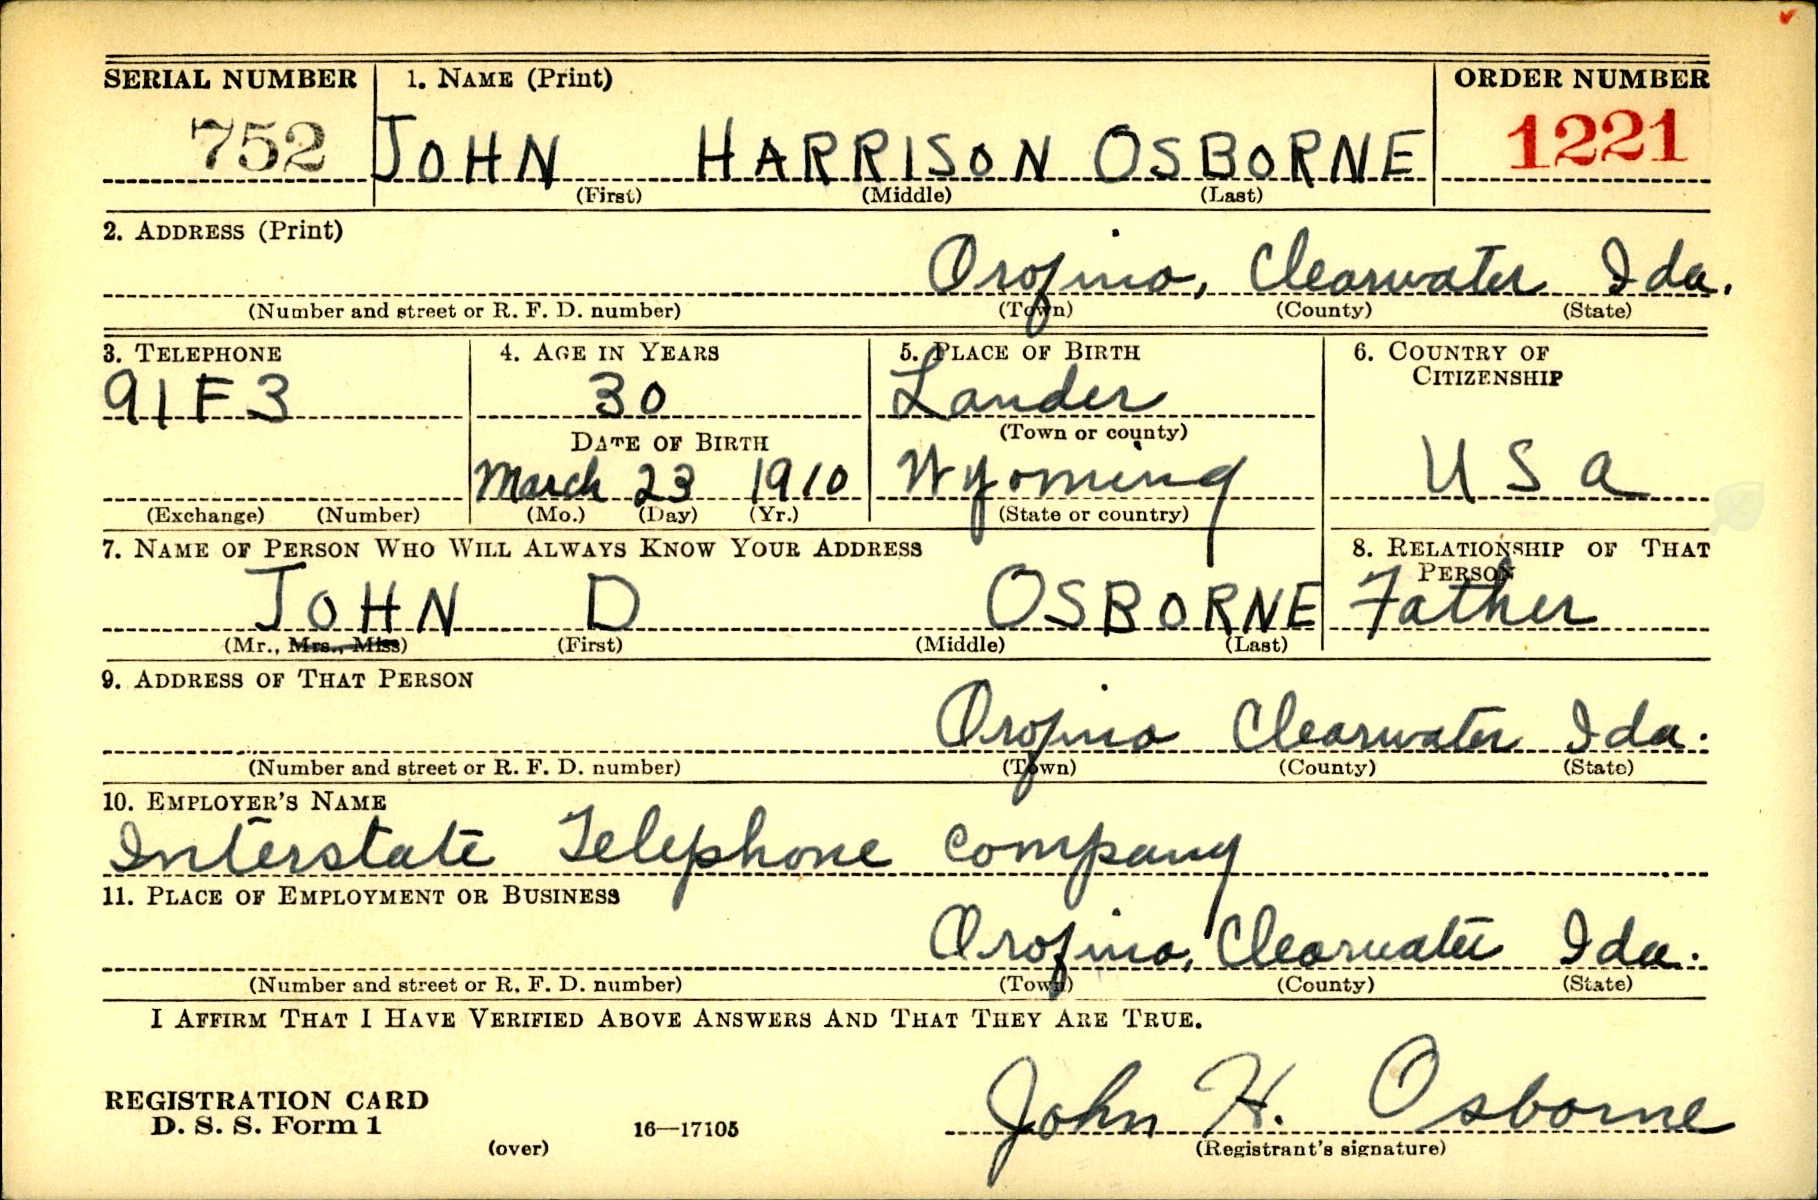 SERIAL NUMBER 1. NAME (Print) ORDER NUMBER
752 JOHN HARRISON OSBORNE 1221
(First) (Middle) (Last)
2. ADDRESS (Print)
Orofino, Clearwater Ida.
(Number and street or R. F. D. number) (Town) (County) (State)
3. TELEPHONE 4. AGE IN YEARS 5. PLACE OF BIRTH 6. COUNTRY OF
CITIZENSHIP
91F3 30 Lander
(Town or county)
DATE OF BIRTH
March 23 1910 Wyoming U S A
(Exchange) (Number) (Mo.) (Day) (Yr.) (State or country)
7. NAME OF PERSON WHO WILL ALWAYS KNOW YOUR ADDRESS 8. RELATIONSHIP OF THAT
PERSON
JOHN D OSBORNE Father
(Mr., Mrs., Miss) (First) (Middle) (Last)
9. ADDRESS OF THAT PERSON
Orofino Clearwater Ida.
(Number and street or R. F. D. number) (Town) (County) (State)
10. EMPLOYER'S NAME
Interstate Telephone Company
11. PLACE OF EMPLOYMENT OR BUSINESS
Orofino, Clearwater Ida.
(Number and street or R. F. D. number) (Town) (County) (State)
I AFFIRM THAT I HAVE VERIFIED ABOVE ANSWERS AND THAT THEY ARE TRUE.
REGISTRATION CARD
D. S. S. Form 1 16—17105 John H. Osborne
(over) (Registrant's signature)